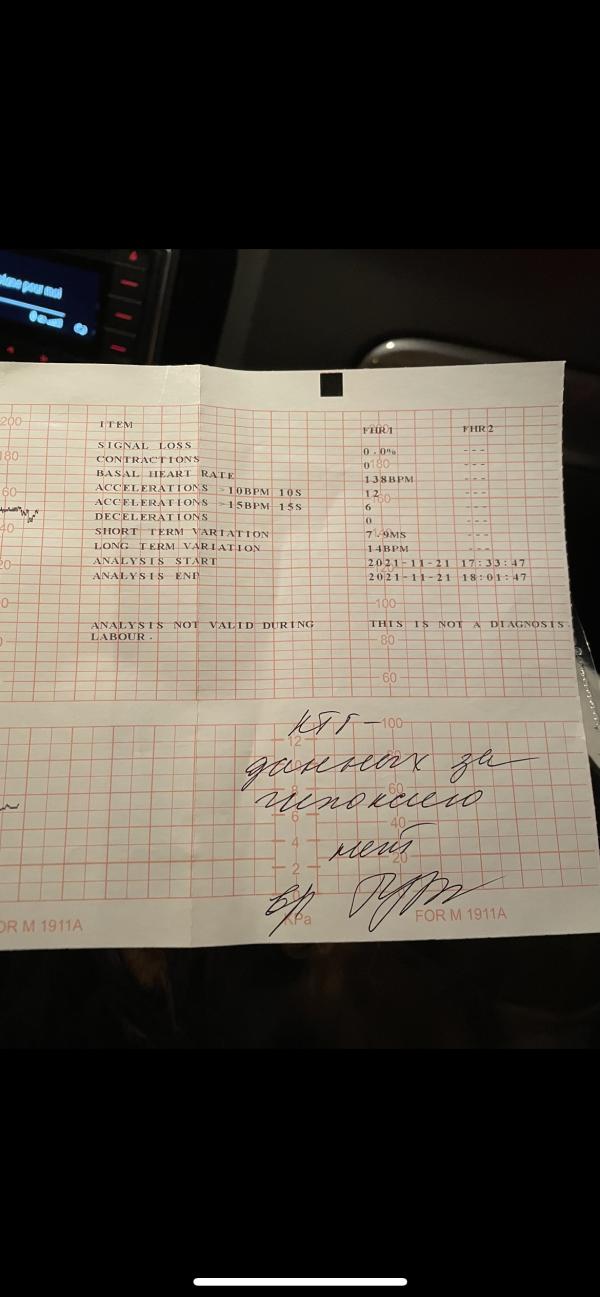 200
ITEM FHR1 FHR2
SIGNAL LOSS 0.0% ---
180
CONTRACTIONS 0 ---
BASAL HEART RATE 138BPM ---
ACCELERATIONS >10BPM 10S 12 ---
ACCELERATIONS >15BPM 15S 6 ---
DECELERATIONS 0 ---
SHORT TERM VARIATION 7.9MS ---
LONG TERM VARIATION 14BPM ---
ANALYSIS START 2021-11-21 17:33:47
ANALYSIS END 2021-11-21 18:01:47
100
ANALYSIS NOT VALID DURING THIS IS NOT A DIAGNOSIS.
LABOUR.
80
60
КТГ-
100
12
данных за
гипоксию
60
6
40
нет
4
20
2
вр
kPa
OR M 1911A FOR M 1911A